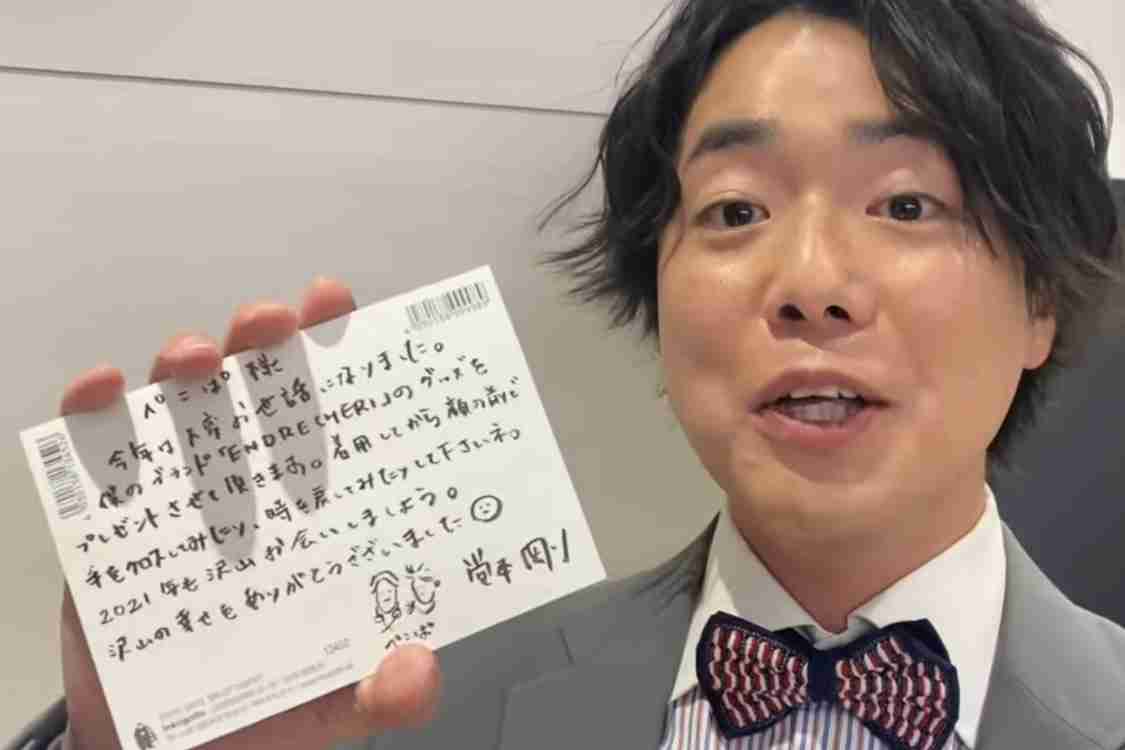 ぺこぱ 様
今年は大変お世話になりました。
僕のブランド「ENDRECHERI」のグッズを
プレゼントさせて頂きます。着用してから顔の前で
手をクロスしてみたり、時を戻してみたりして下さいネ。
2021年も沢山お会いしましょう。
沢山の幸せをありがとうございました
堂本剛
ぺこぱ